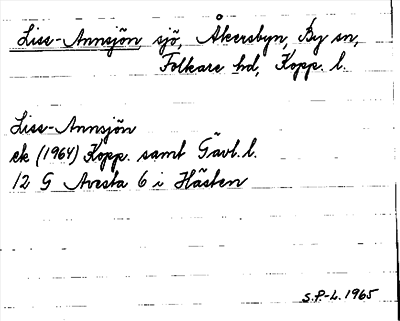 Liss-Annsjön sjö, Åkersbyn, By sn,
Folkare hd, Kopp. l.
Liss-Annsjön
ek (1964) Kopp. samt Gävl. l.
12 G Avesta 6 i Hästen
S.P.-L. 1965